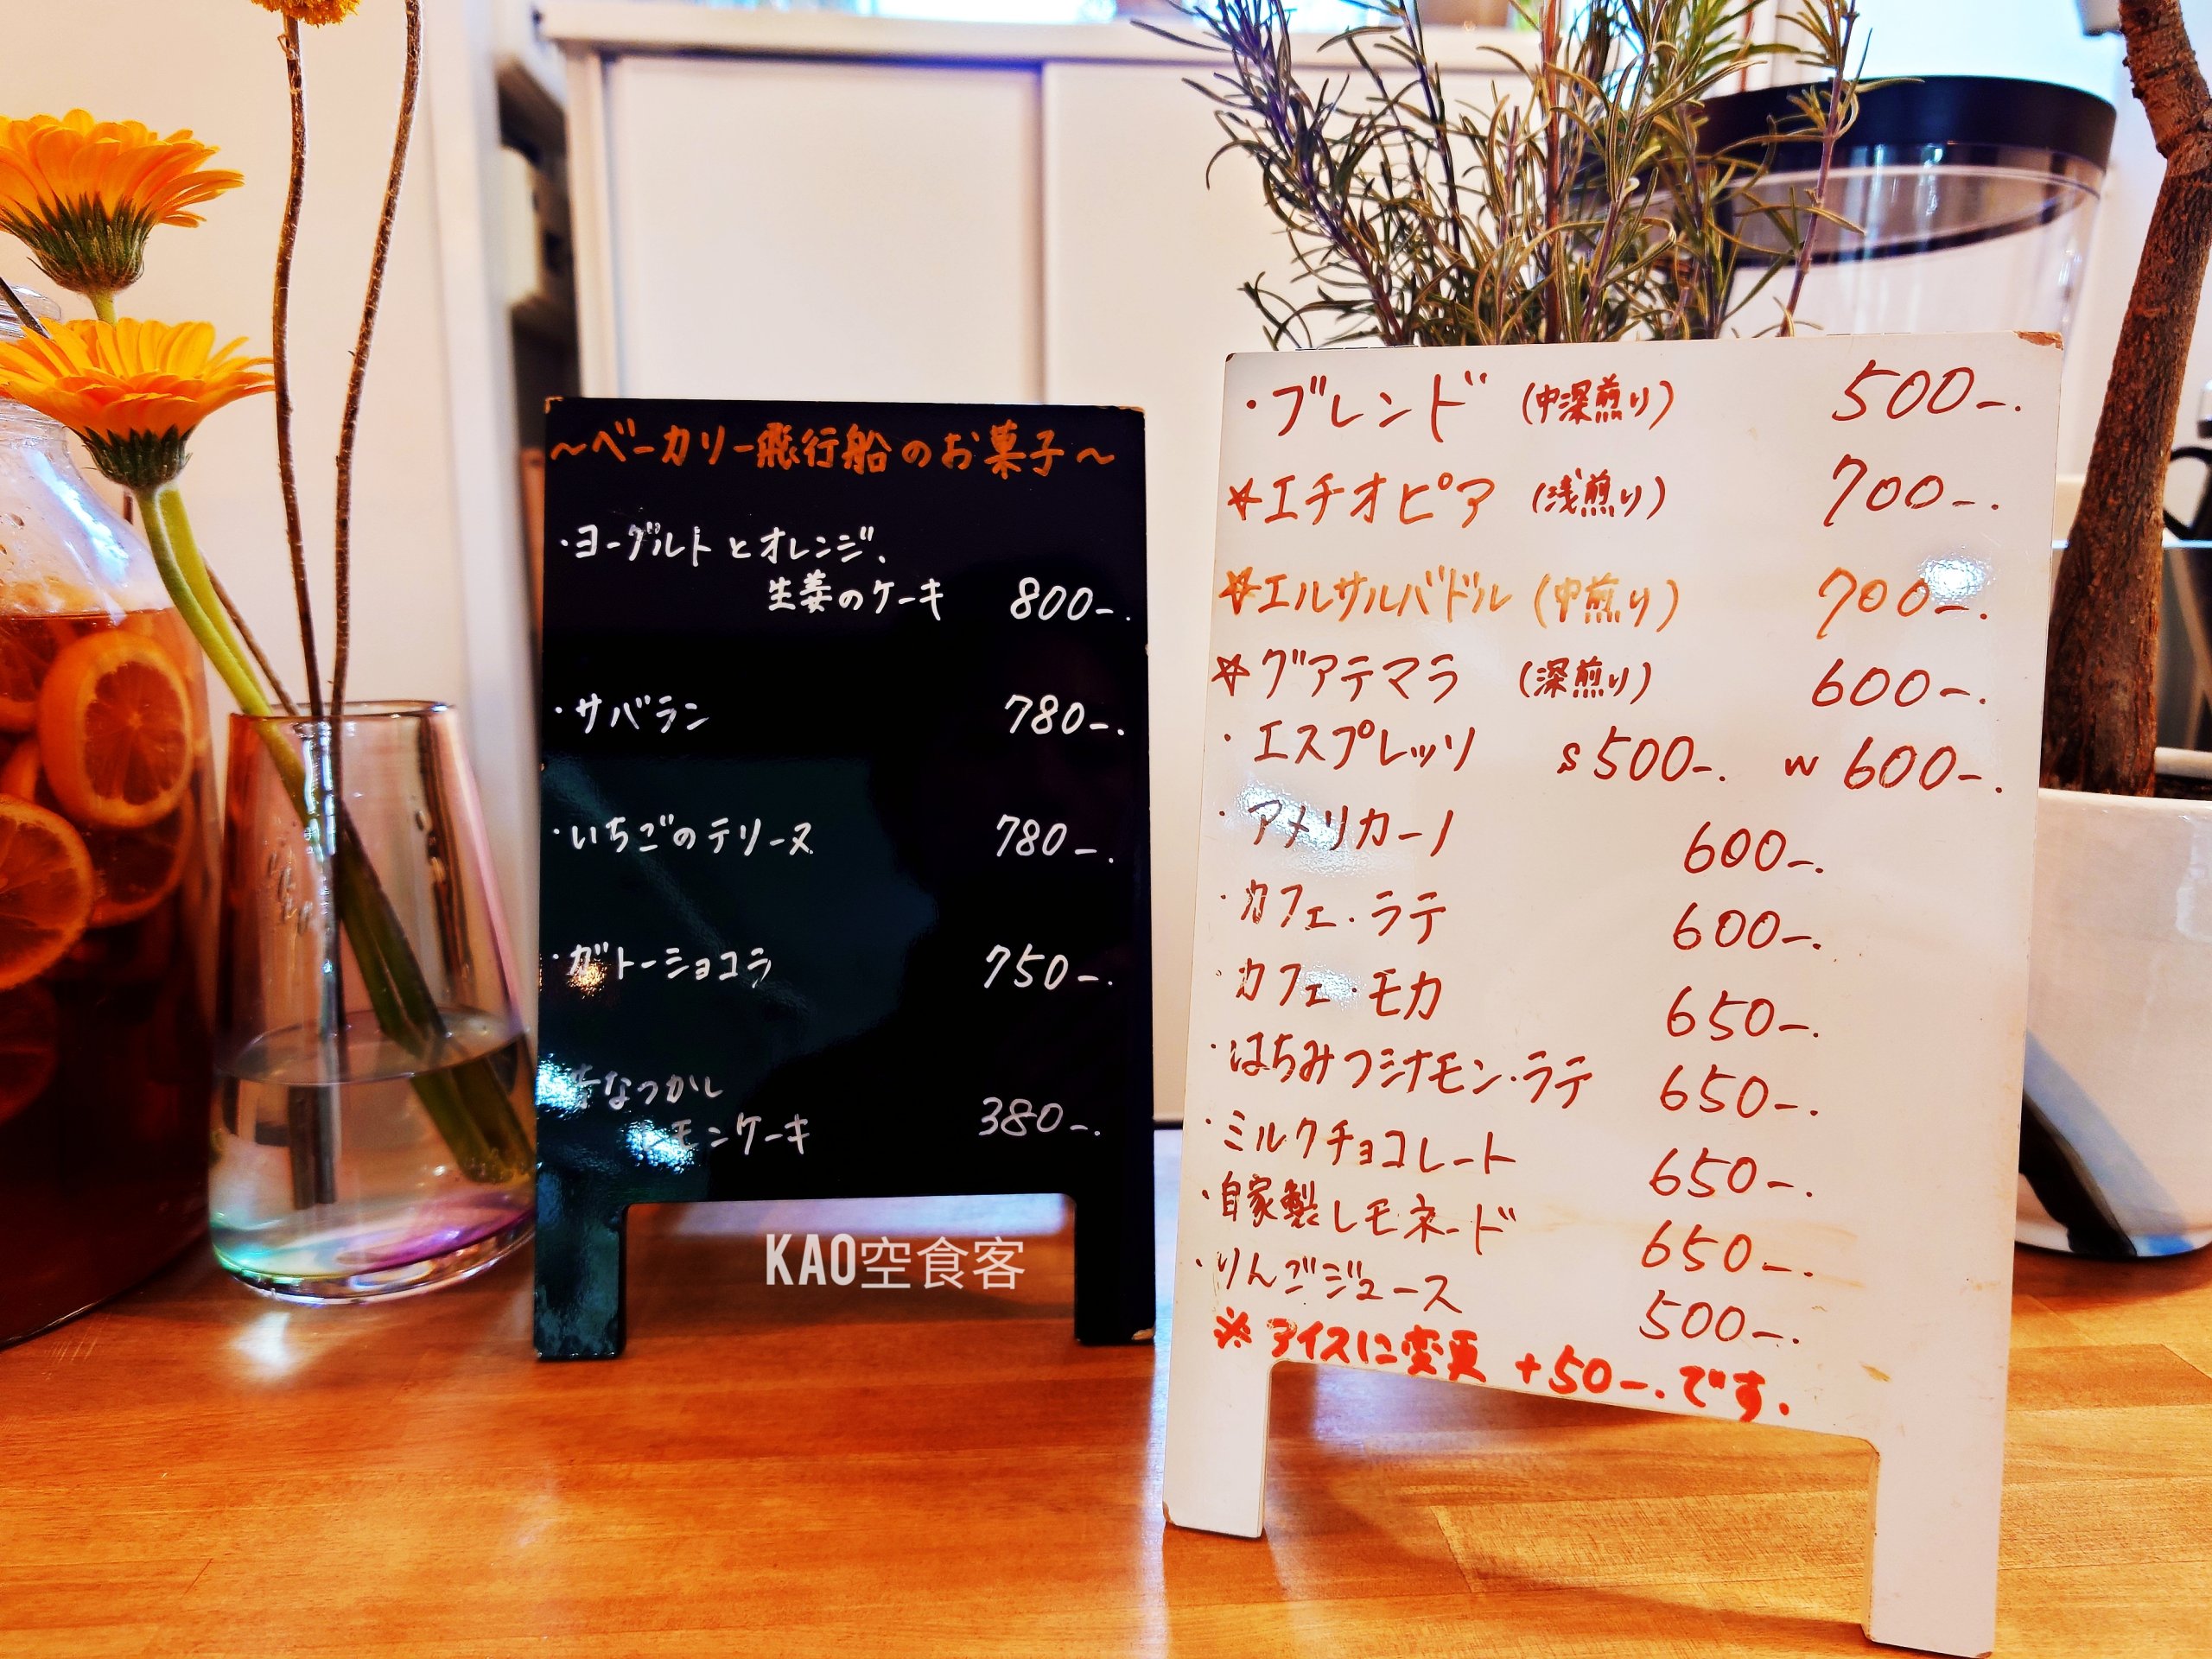 ～ベーカリー飛行船のお菓子～
・ヨーグルトとオレンジ、
生姜のケーキ 800-.
・サバラン 780-.
・いちごのテリーヌ 780-.
・ガトーショコラ 750-.
昔なつかし
レモンケーキ 380-.
KAO空食客
・ブレンド (中深煎り) 500-.
☆エチオピア (浅煎り) 700-.
☆エルサルバドル (中煎り) 700-.
☆グアテマラ (深煎り) 600-.
・エスプレッソ s 500-. w 600-.
・アメリカーノ 600-.
・カフェ・ラテ 600-.
・カフェ・モカ 650-.
・はちみつシナモン・ラテ 650-.
・ミルクチョコレート 650-.
・自家製レモネード 650-.
・りんごジュース 500-.
※アイスに変更 +50-.です.